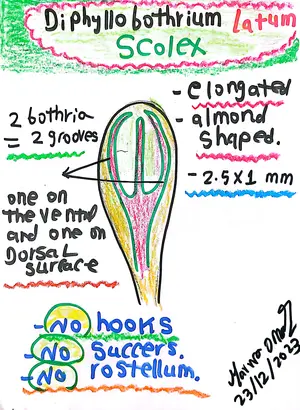 Diphyllobothrium latum
Scolex
2 bothria
= 2 grooves
- Elongated
- almond
shaped.
- 2.5x1 mm
one on
the ventral
and one on
Dorsal
surface
- No hooks
- No succers.
- No rostellum.
23/12/2023